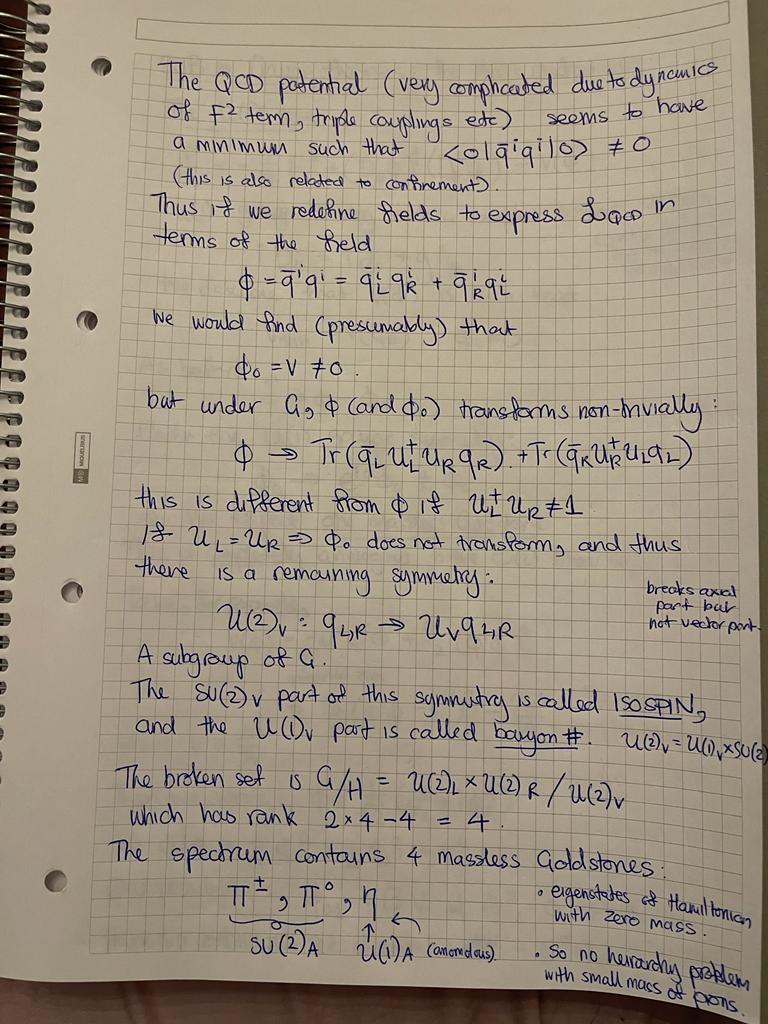 The QCD potential (very complicated due to dynamics
of F² term, triple couplings etc) seems to have
a minimum such that <0|q̄ⁱqⁱ|0> ≠ 0
(this is also related to confinement).
Thus if we redefine fields to express ℒ_QCD in
terms of the field
ϕ = q̄ⁱqⁱ = q̄ⁱ_L qⁱ_R + q̄ⁱ_R qⁱ_L
We would find (presumably) that
ϕ₀ = v ≠ 0.
but under G, ϕ (and ϕ₀) transforms non-trivially:
ϕ → Tr(q̄_L U_L† U_R q_R) + Tr(q̄_R U_R† U_L q_L)
this is different from ϕ if U_L† U_R ≠ 1
If U_L = U_R ⇒ ϕ₀ does not transform, and thus
there is a remaining symmetry:
breaks axial
part but
not vector part.
U(2)_V : q_L,R → U_V q_L,R
A subgroup of G.
The SU(2)_V part of this symmetry is called ISOSPIN,
and the U(1)_V part is called baryon #. U(2)_V = U(1)_V × SU(2)
The broken set is G/H = U(2)_L × U(2)_R / U(2)_V
which has rank 2×4-4 = 4.
The spectrum contains 4 massless Goldstones:
π±, π⁰, η
SU(2)_A U(1)_A (anomalous).
• eigenstates of Hamiltonian
with zero mass.
• So no heirarchy problem
with small mass of pions.
MIQUELRIUS